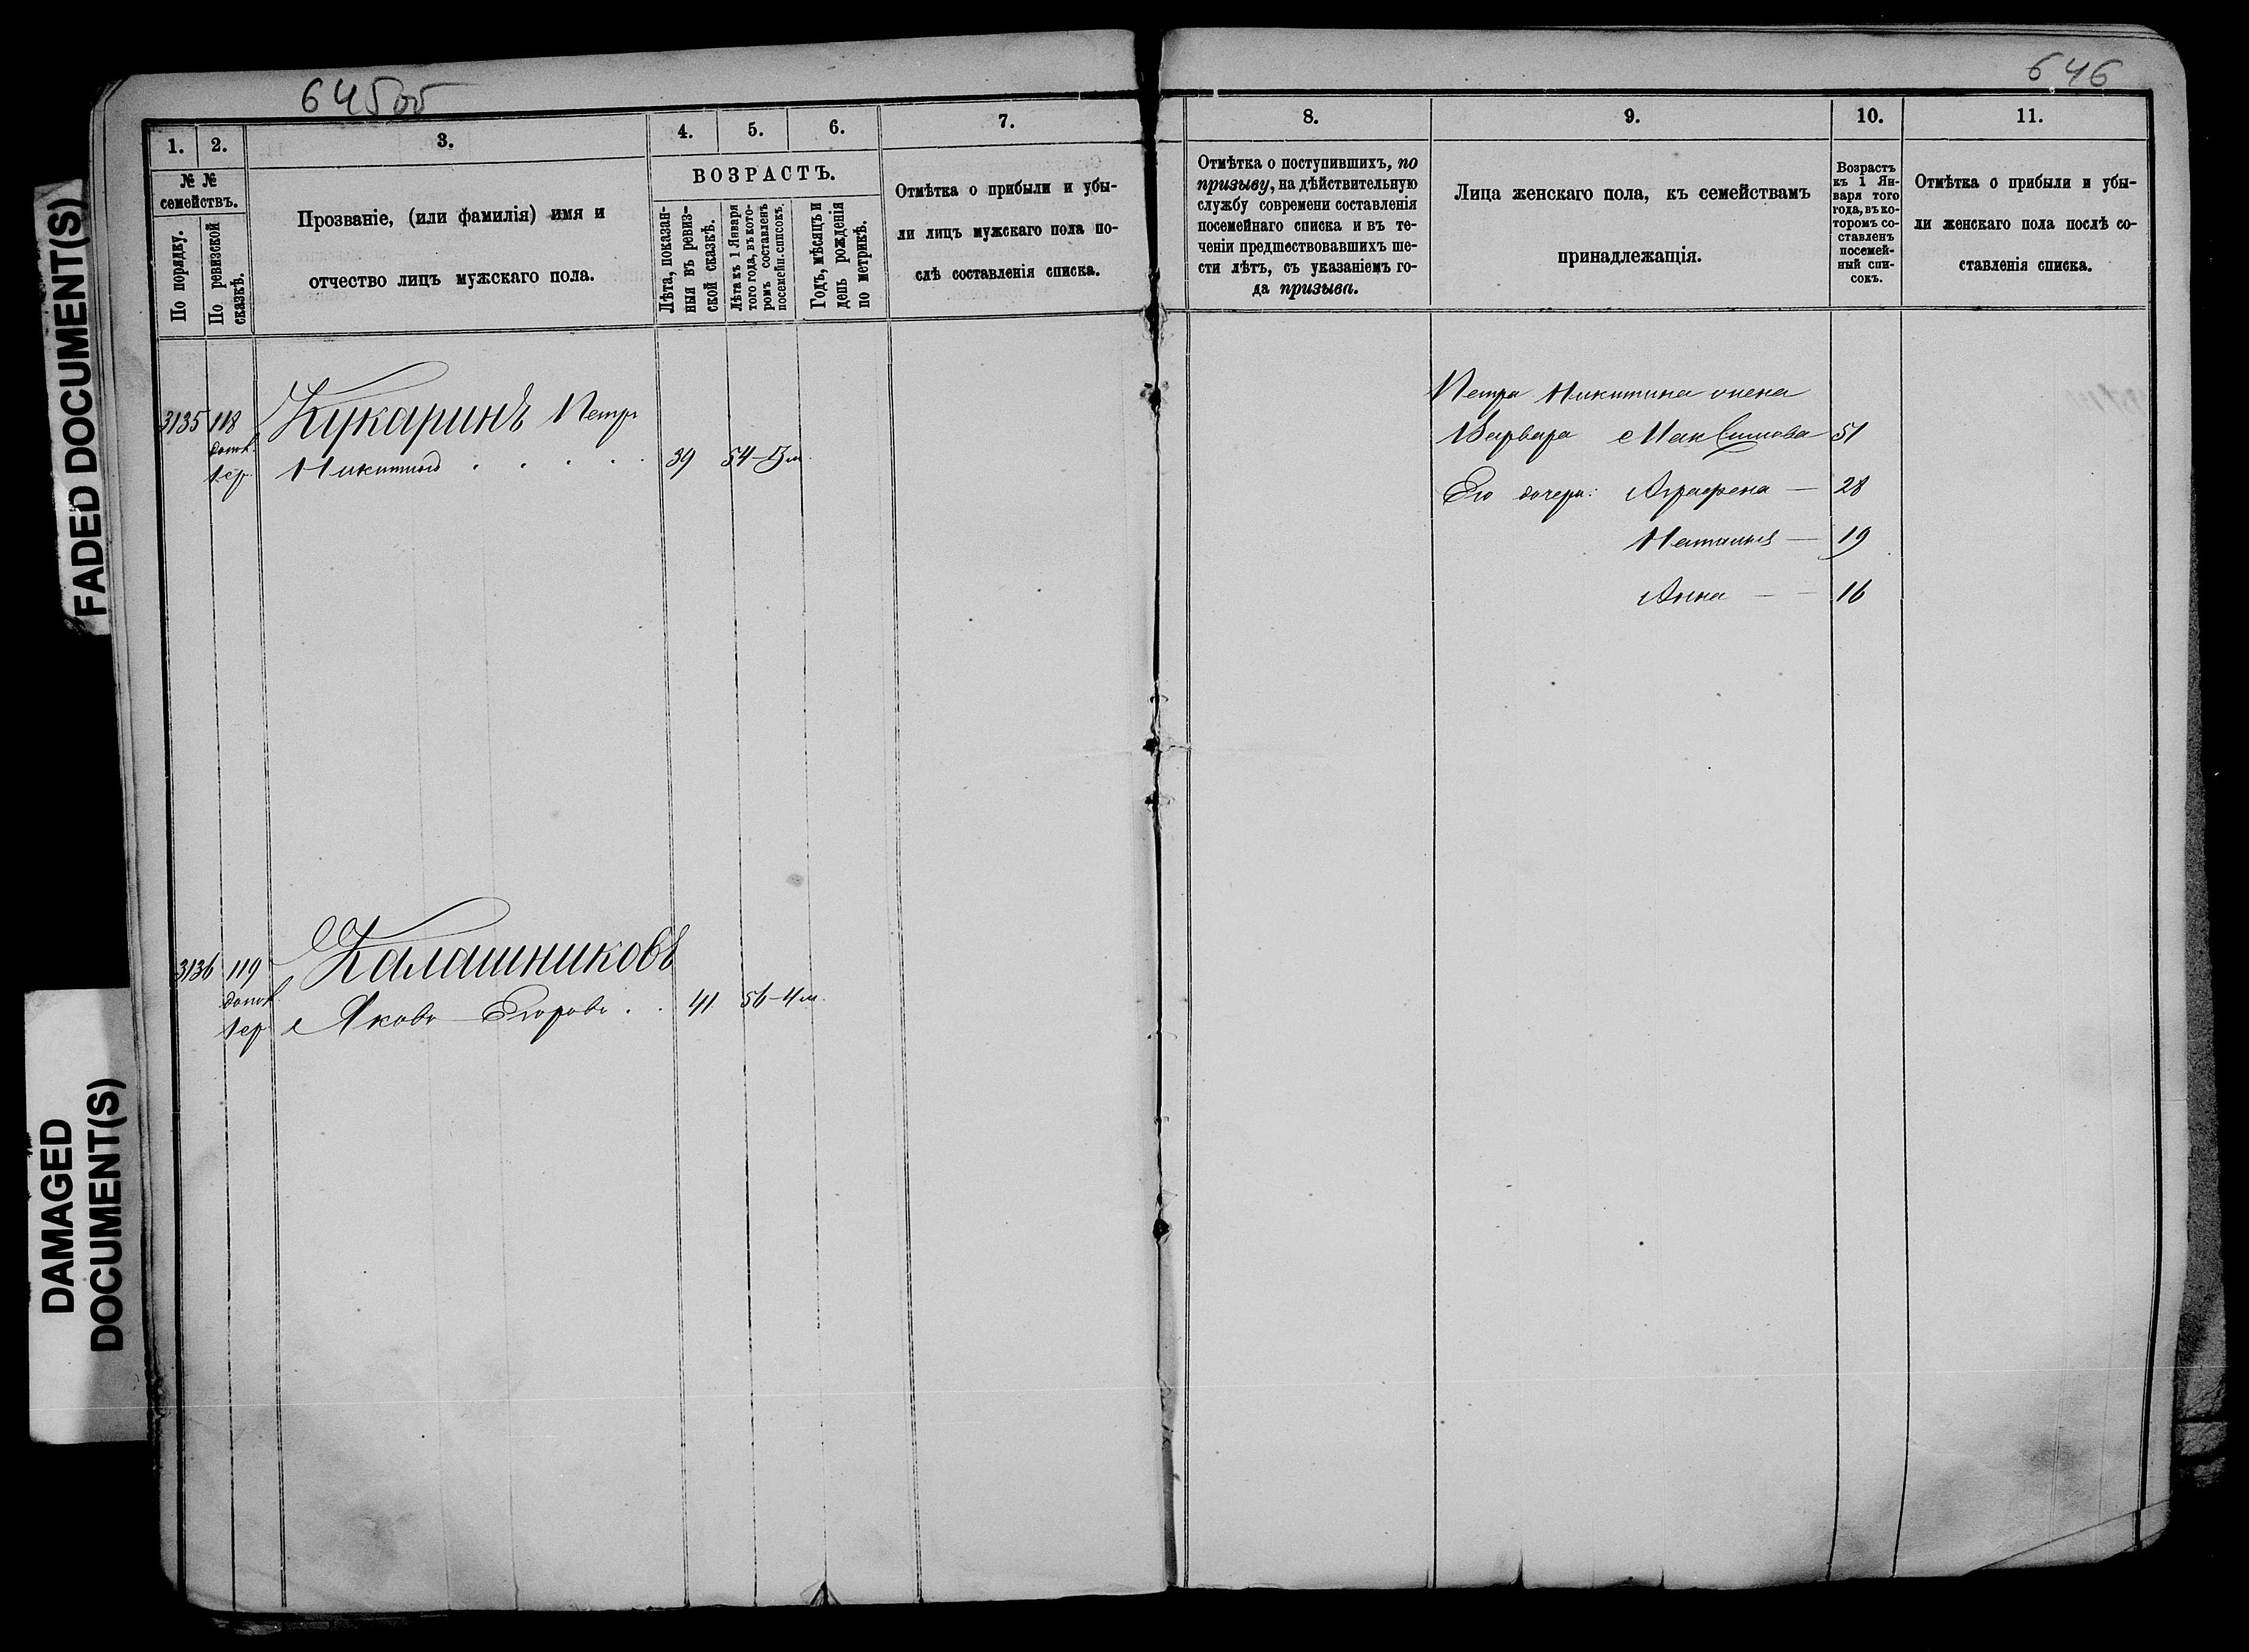 645об
646
1.
2.
3.
4.
5.
6.
7.
8.
9.
10.
11.
№ №
семействъ.
По порядку.
По ревизской
сказкѣ.
Прозваніе, (или фамилія) имя и
отчество лицъ мужскаго пола.
ВОЗРАСТЪ.
Лѣта, показан-
ныя въ ревиз-
ской сказкѣ.
Лѣта къ 1 Января
того года, въ кото-
ромъ составленъ
посемейн. списокъ.
Годъ, мѣсяцъ и
день рожденія
по метрикѣ.
Отмѣтка о прибыли и убы-
ли лицъ мужскаго пола по-
слѣ составленія списка.
Отмѣтка о поступившихъ, по
призыву, на дѣйствительную
службу современи составленія
посемейнаго списка и въ те-
ченіи предшествовавшихъ ше-
сти лѣтъ, съ указаніемъ го-
да призыва.
Лица женскаго пола, къ семействамъ
принадлежащія.
Возрастъ
къ 1 Ян-
варя того
года, въ ко-
торомъ со-
ставленъ
посемей-
ный спи-
сокъ.
Отмѣтка о прибыли и убы-
ли женскаго пола послѣ со-
ставленія списка.
3135 118 Кукаринъ Петръ
Никитинъ 39 54
Петра Никитина жена
Варвара Максимова 51
Его дочери: Аграфена — 28
Наталья — 19
Анна — — 16
3136 119 Калашниковъ
Яковъ Егоровъ . . 41 56-4 м.
FADED DOCUMENT(S)
DAMAGED
DOCUMENT(S)